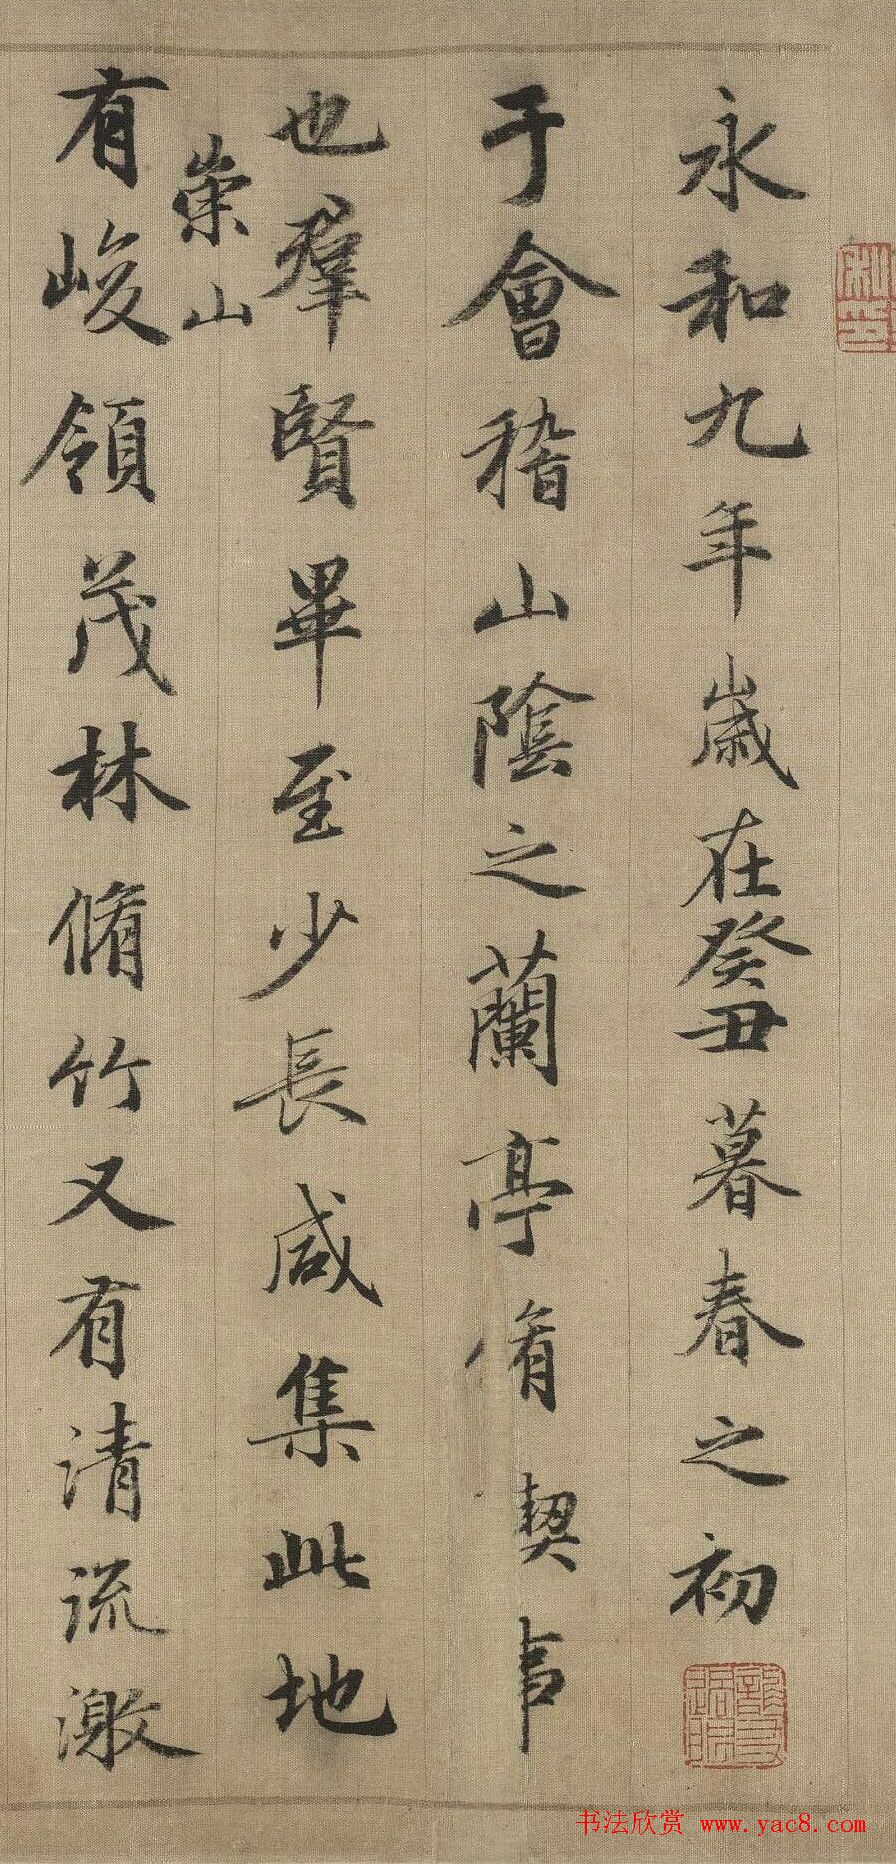 永和九年歲在癸丑暮春之初
于會稽山陰之蘭亭脩禊事
也羣賢畢至少長咸集此地
崇山
有峻領茂林脩竹又有清流激
书法欣赏 www.yac8.com